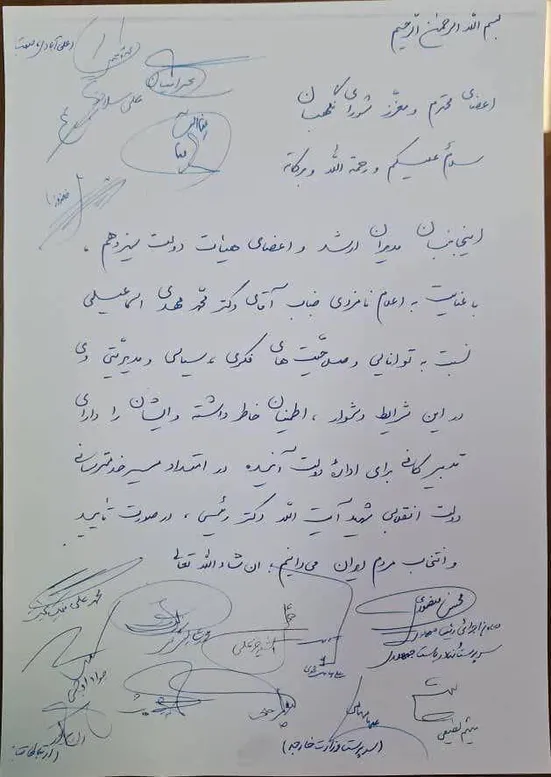 بسم الله الرحمن الرحیم
اعضای محترم و معزز شورای نگهبان
سلام علیکم و رحمة الله و برکاته
اینجانبان مدیران ارشد و اعضای هیات دولت سیزدهم،
با عنایت به اعلام نامزدی جناب آقای دکتر محمد مهدی اسماعیلی
نسبت به توانایی و صلاحیت های فکری، سیاسی و مدیریتی وی
در این شرایط دشوار، اطمینان خاطر داشته و ایشان را دارای
تدبیر کافی برای ادارهٔ دولت آینده در امتداد مسیر خدمترسانی
دولت انقلابی شهید آیت الله دکتر رئیسی، در صورت تأیید
و انتخاب مردم ایران می‌دانیم. ان شاء الله تعالی
محسن منصوری
معاون اجرائی رئیس جمهور
سرپرست نهاد ریاست جمهوری
میثم لطیفی
علی باقری
(سرپرست وزارت خارجه)
جواد اوجی